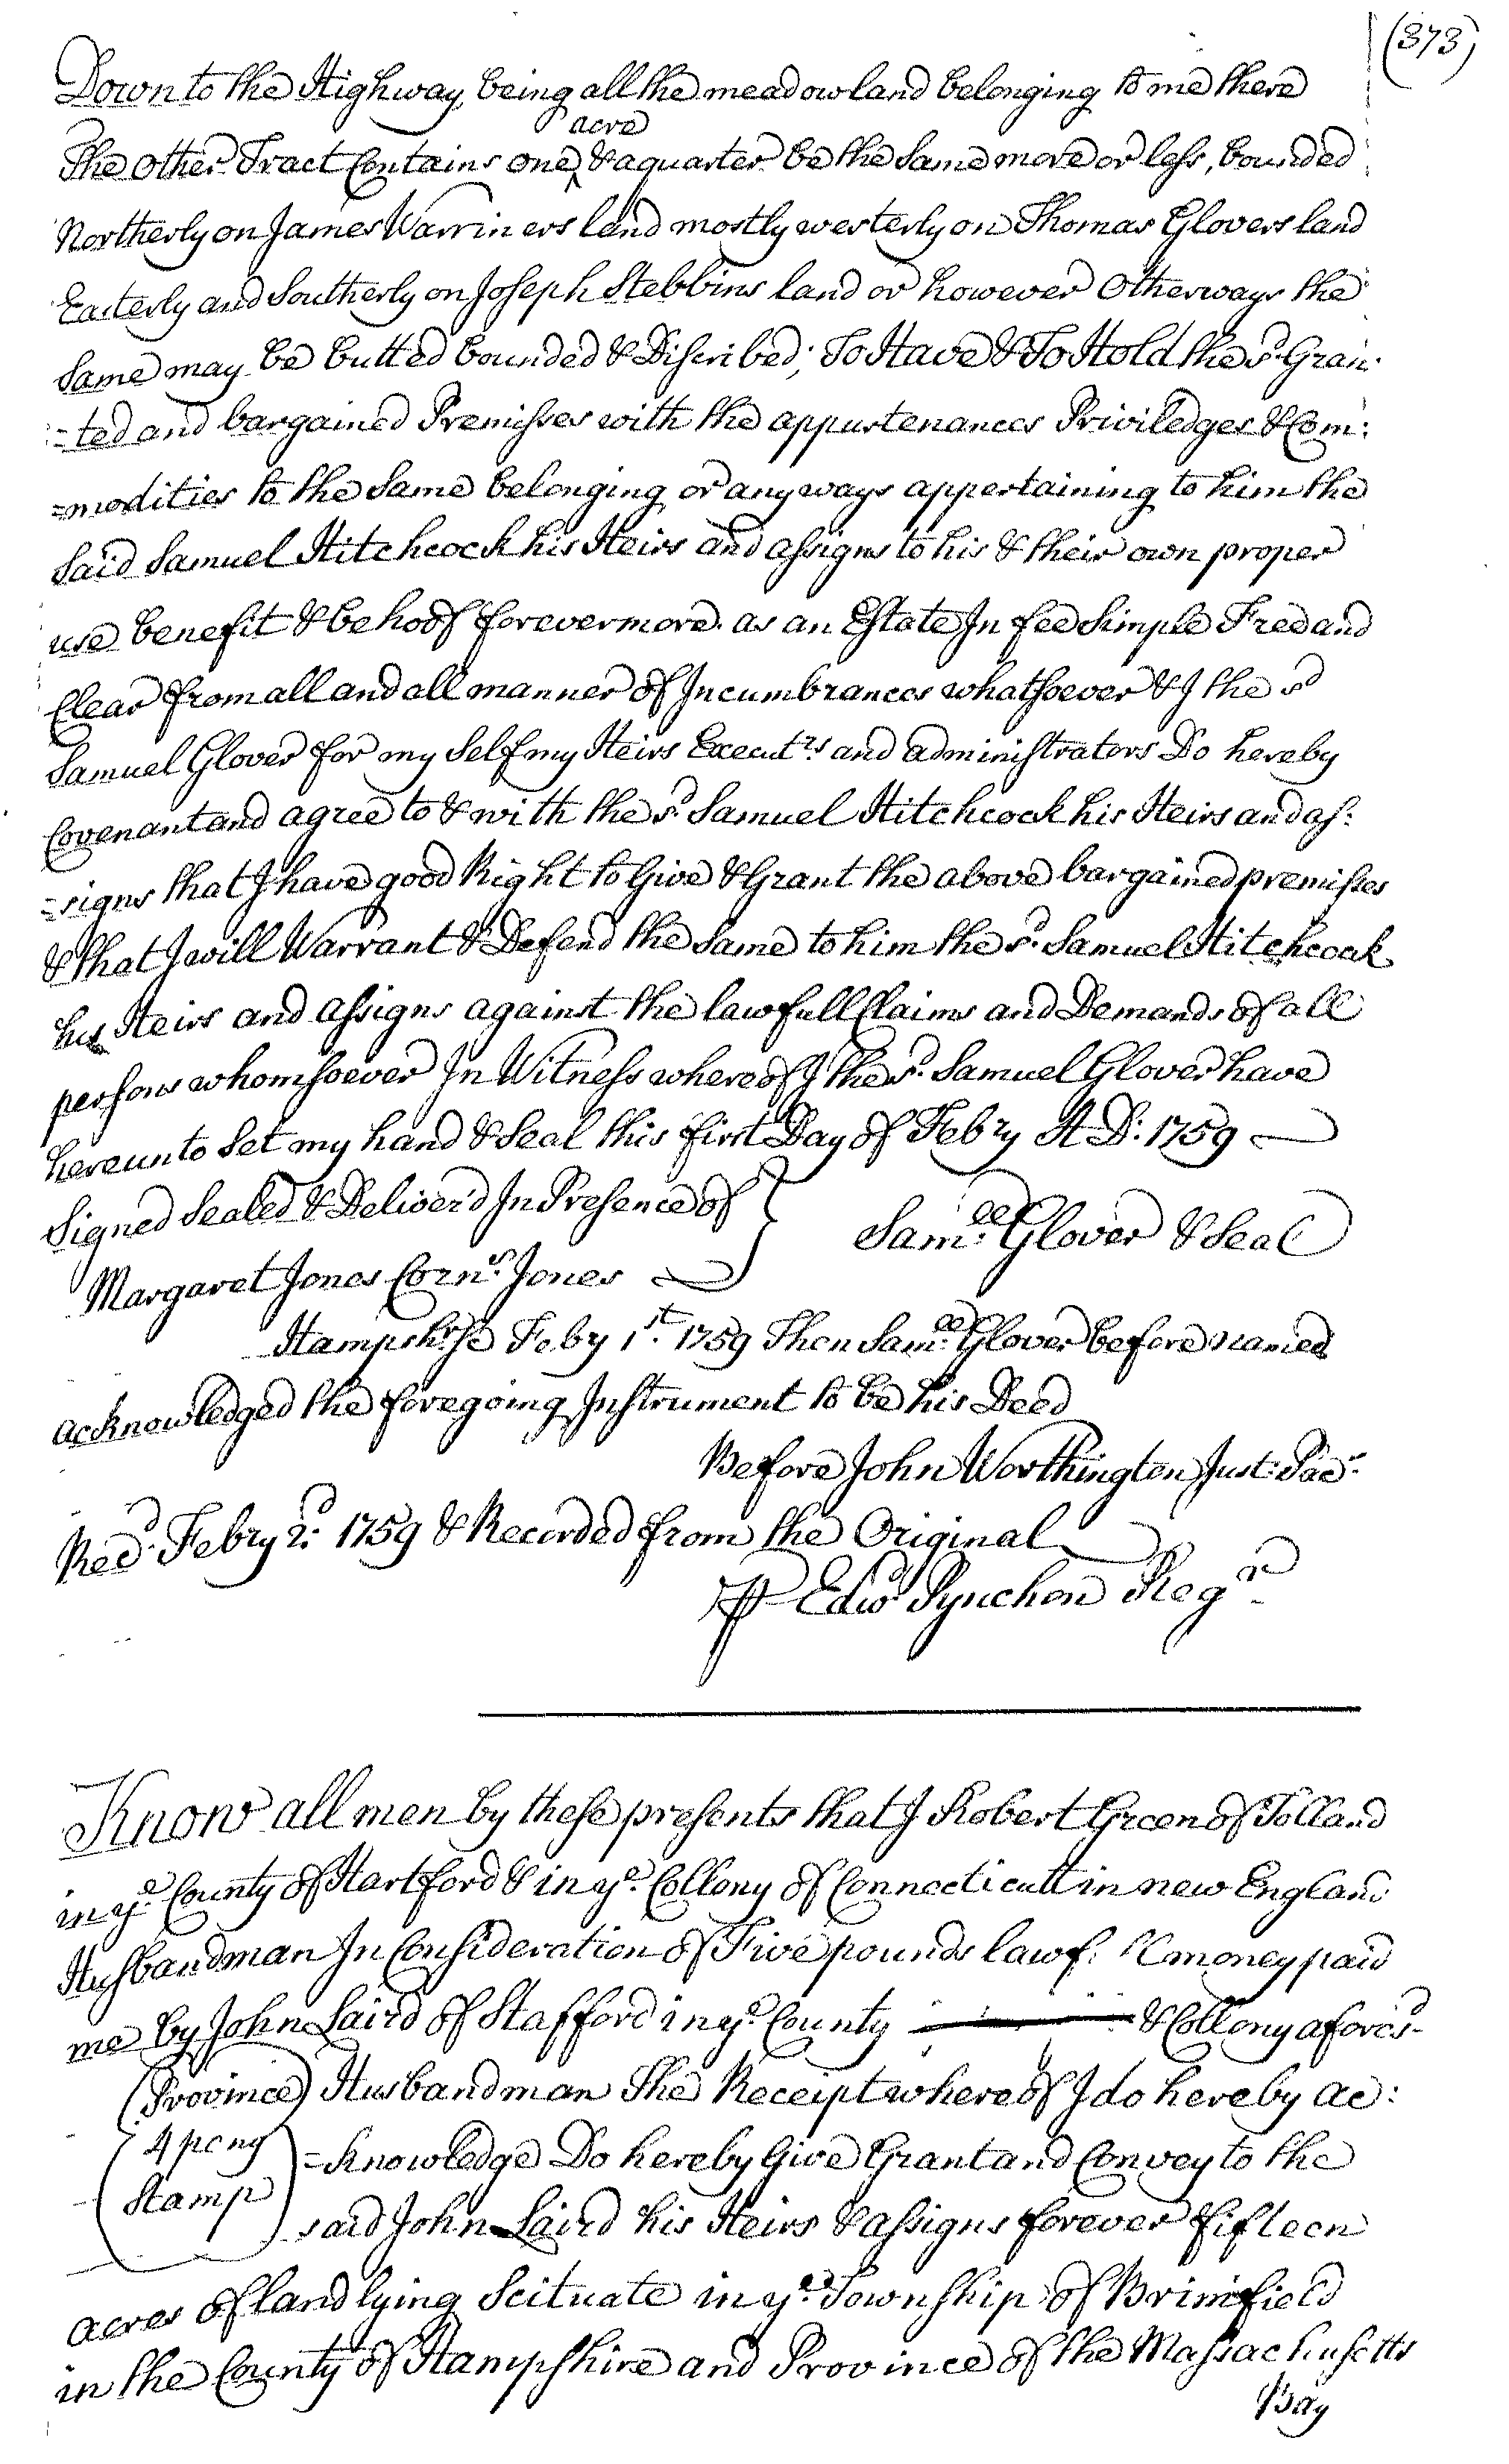 (373)
Down to the Highway, being all the meadow land belonging to me there
acre
The Other Tract Contains one ^ & a quarter be the Same more or less, bounded
Northerly on James Warriners land mostly westerly on Thomas Glovers land
Easterly and Southerly on Joseph Stebbins land or however Otherways the
Same may be butted bounded & Discribed; To Have & To Hold the sd. Gran:
=ted and bargained Premisses with the appurtenances Priviledges & Com:
=modities to the Same belonging or anyways appertaining to him the
Said Samuel Hitchcock his Heirs and assigns to his & their own proper
use benefit & behoof forevermore. as an Estate In fee Simple Free and
Clear from all and all manner of Incumbrances whatsoever & I the sd
Samuel Glover for my Self my Heirs Executrs and administrators Do hereby
Covenant and agree to & with the sd. Samuel Hitchcock his Heirs and as:
=signs that I have good Right to Give & Grant the above bargained premisses
& that I will Warrant & Defend the Same to him the sd. Samuel Hitchcock
his Heirs and assigns against the lawfull Claims and Demands of all
persons whomsoever In Witness whereof I the sd. Samuel Glover have
hereunto Set my hand & Seal this first Day of Febry A D: 1759
Signed Sealed & Deliver'd In Presence of } Samll. Glover & Seal
Margaret Jones Corns. Jones
Hampshr. Feby 1st. 1759 Then Samll. Glover before named
acknowledged the foregoing Instrument to be his Deed
Before John Worthington Just: Pac:
Recd. Febry 2d: 1759 & Recorded from the Original
P Edwd Pynchon Regr.
Know all men by these presents that I Robert Green of Tolland
in ye. County of Hartford & in ye. Collony of Connecticutt in new England
Husbandman In Consideration of Five pounds lawf: ll money paid
me by John Laird of Stafford in ye. County & Collony aforesd
(Province) Husbandman The Receipt whereof I do hereby ac:
4 peny =knowledge Do hereby Give Grant and Convey to the
Stamp said John Laird his Heirs & assigns forever fifteen
acres of land lying Scituate in ye. Township of Brimfield
in the County of Hampshire and Province of the Massachusetts
Bay